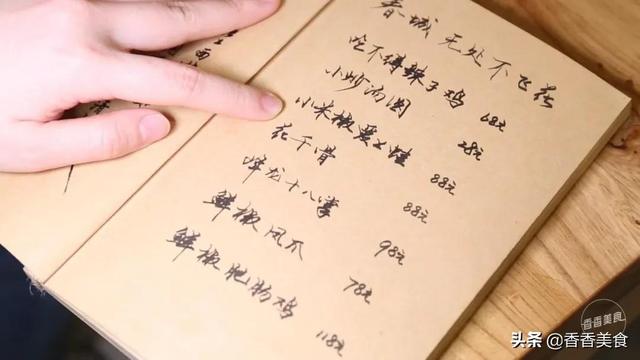 春城无处不飞花
吃不得辣子鸡 68元
小炒 28元
小米椒爱上蛙 88元
花千骨 88元
降龙十八掌 98元
鲜椒凤爪 78元
鲜椒肥肠鸡 118元
香香美食
头条 @香香美食